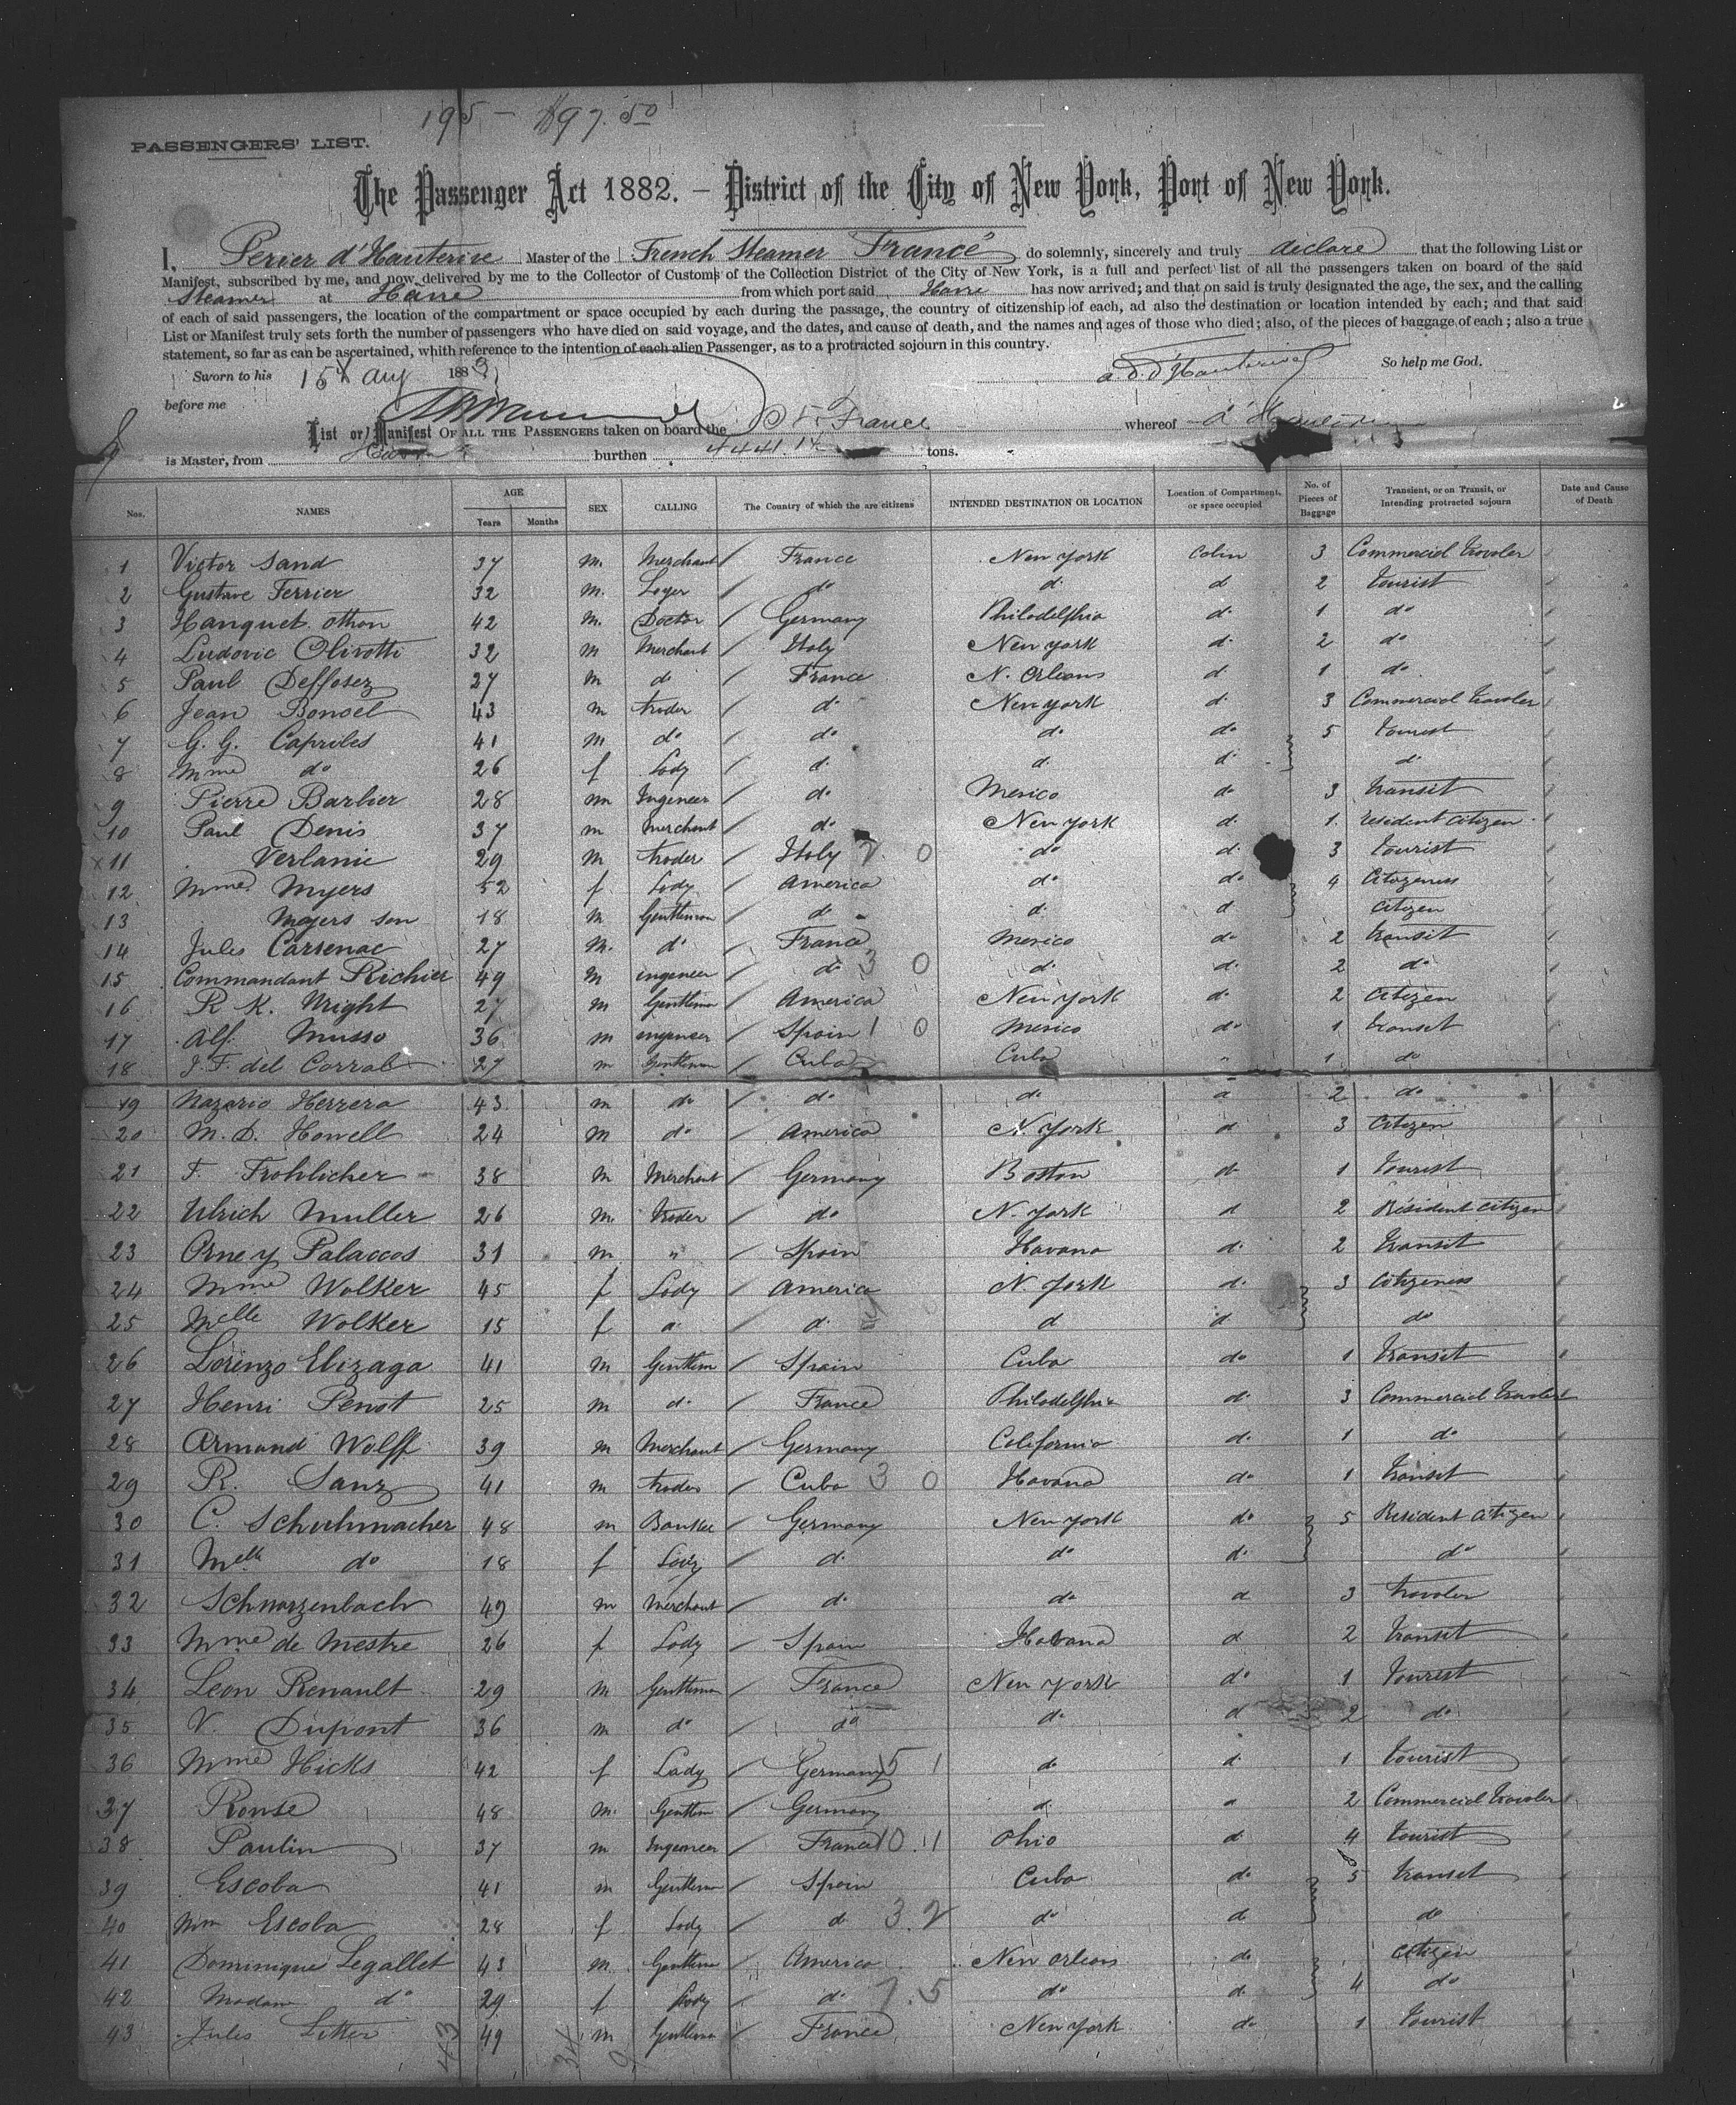 195 - $97.50
PASSENGERS' LIST.
The Passenger Act 1882. — District of the City of New York, Port of New York.
I, Perier d'Hauterive Master of the French Steamer "France" do solemnly, sincerely and truly declare that the following List or
Manifest, subscribed by me, and now delivered by me to the Collector of Customs of the Collection District of the City of New York, is a full and perfect list of all the passengers taken on board of the said
Steamer at Havre from which port said Havre has now arrived; and that on said is truly designated the age, the sex, and the calling
of each of said passengers, the location of the compartment or space occupied by each during the passage, the country of citizenship of each, ad also the destination or location intended by each; and that said
List or Manifest truly sets forth the number of passengers who have died on said voyage, and the dates, and cause of death, and the names and ages of those who died; also, of the pieces of baggage of each; also a true
statement, so far as can be ascertained, whith reference to the intention of each alien Passenger, as to a protracted sojourn in this country.
Sworn to his 15th Aug 1883 So help me God.
before me
List or Manifest OF ALL THE PASSENGERS taken on board the France whereof
is Master, from burthen 4441.14 tons.
Nos. NAMES AGE Years Months SEX CALLING The Country of which the are citizens INTENDED DESTINATION OR LOCATION Location of Compartment, or space occupied No. of Pieces of Baggage Transient, or on Transit, or Intending protracted sojourn Date and Cause of Death
1 Victor Sand 37 m. Merchant France New York Cabin 3 Commercial traveler
2 Gustave Ferrier 32 m. do d. d 2 tourist
3 Hanquet Othon 42 m. Doctor Germany Philadelphia d. 1 do
4 Ludovic Olivotti 32 m Merchant Italy New York d. 2 do
5 Paul Deffosez 27 m do France N. Orleans d 1 do
6 Jean Boncel 43 m trader d. New York d. 3 Commercial traveler
7 G. G. Capriles 41 m do do do do 5 tourist
8 Mme do 26 f Lady d. d. d. d.
9 Pierre Barbier 28 m Ingeneer do Mexico do 3 transit
10 Paul Denis 37 m Merchant do New York d. 1. resident citizen
x11 Verlanie 29 m trader Italy 2 0 do d. 3 tourist
12 Mme Myers 52 f Lady America do do 4 Citizeness
13 Meyers son 18 m Gentleman do d. d citizen
14 Jules Carsenac 27 m. d. France Mexico do 2 transit
15 Commandant Richier 49 m ingeneer do 3 0 d. d. 2 do
16 R K. Wright 27 m Gentleman America New York do 2 citizen
17 Alf. Musso 36 m engeneer Spain 1 0 Mexico do 1 transit
18 J. F. del Corral 27 m Gentleman Cuba Cuba " 1 do
19 Nazario Herrera 43 m do do do d 2 do
20 M. D. Howell 24 m do America N. York d 3 Citizen
21 F. Frohlicher 38 m Merchant Germany Boston do 1 tourist
22 Ulrich Muller 26 m. trader do N. York d 2 Résident citizen
23 Orne y Palaccos 31 m " Spain Havana d. 2 transit
24 Mme Walker 45 f Lady America N. York d. 3 Citizeness
25 Melle Walker 15 f d. d. d d do
26 Lorenzo Elizaga 41 m Gentlem Spain Cuba do 1 transit
27 Henri Penot 25 m d. France Philadelphia d. 3 Commercial traveler
28 Armand Wolff 39 m Merchant Germany California d. 1 do
29 R. Sanz 41 m trader Cuba 3 0 Havana do 1 transit
30 C. Schuhmacher 48 m Banker Germany New York do 5 Resident citizen
31 Melle do 18 f Lady d. do d. do
32 Schwarzenbach 49 m Merchant d. do d 3 traveler
33 Mme de Mestre 26 f Lady Spain Habana d 2 transit
34 Leon Renault 29 m Gentleman France New York do 1 tourist
35 V. Dupont 36 m do do do d 2 do
36 Mme Hicks 42 f Lady Germany 5 1 do d. 1 tourist
37 Ronse 48 m. Gentlem Germany d. d 2 Commercial traveler
38 Paulin 37 m Ingeneer France 10. 1 Ohio d 4 tourist
39 Escoba 41 m Gentleman Spain Cuba do 5 transit
40 Mm Escoba 28 f Lady d 3. 2 do d do
41 Dominique Legallet 43 m. Gentlem America New Orleans do citizen
42 Madam do 29 f Lady d. 7. 5 do d. 4 do
43 Jules Litter 49 m Gentleman France New York do 1 tourist
43 34 9